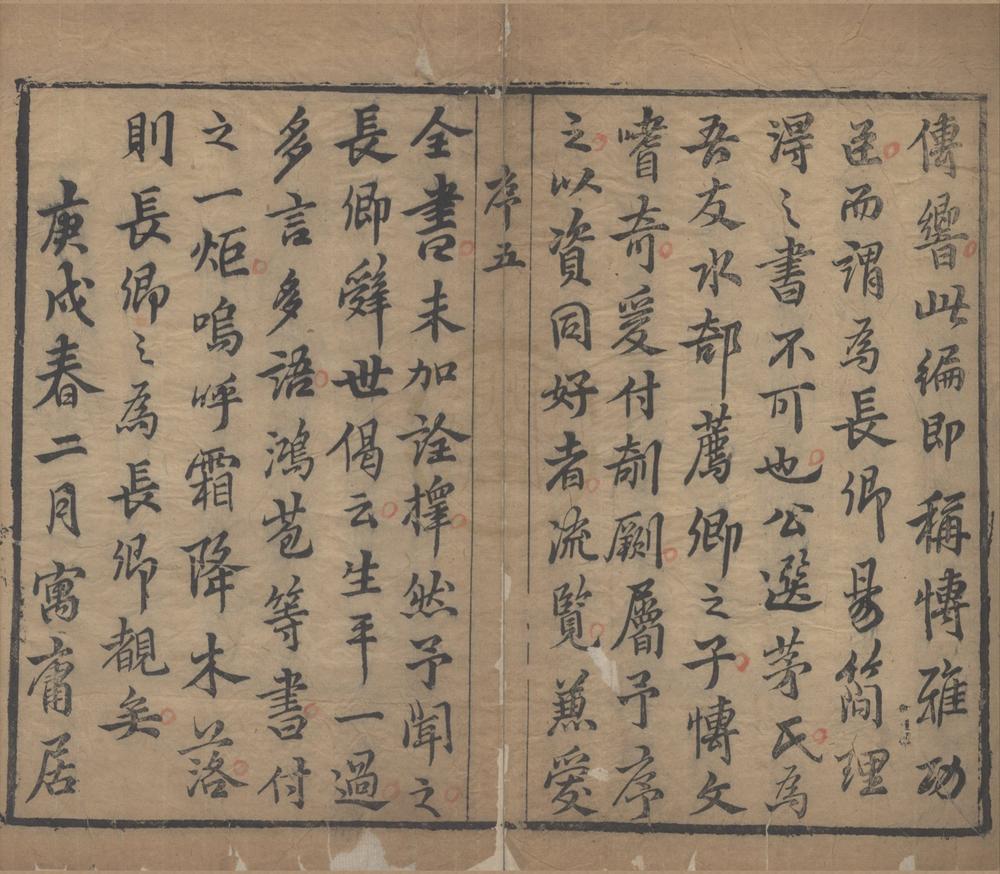 傳響此編即稱博雅功
臣而謂為長卿易簡理
得之書不可也公選茅氏為
吾友水部薦卿之子博文
嗜奇爰付剞劂屬予序
之以資同好者流覽兼愛
序五
全書未加詮擇然予聞之
長卿辭世偈云生平一過
多言多語鴻苞等書付
之一炬嗚呼霜降木落
則長卿之為長卿覩矣
庚戌春二月寓庸居